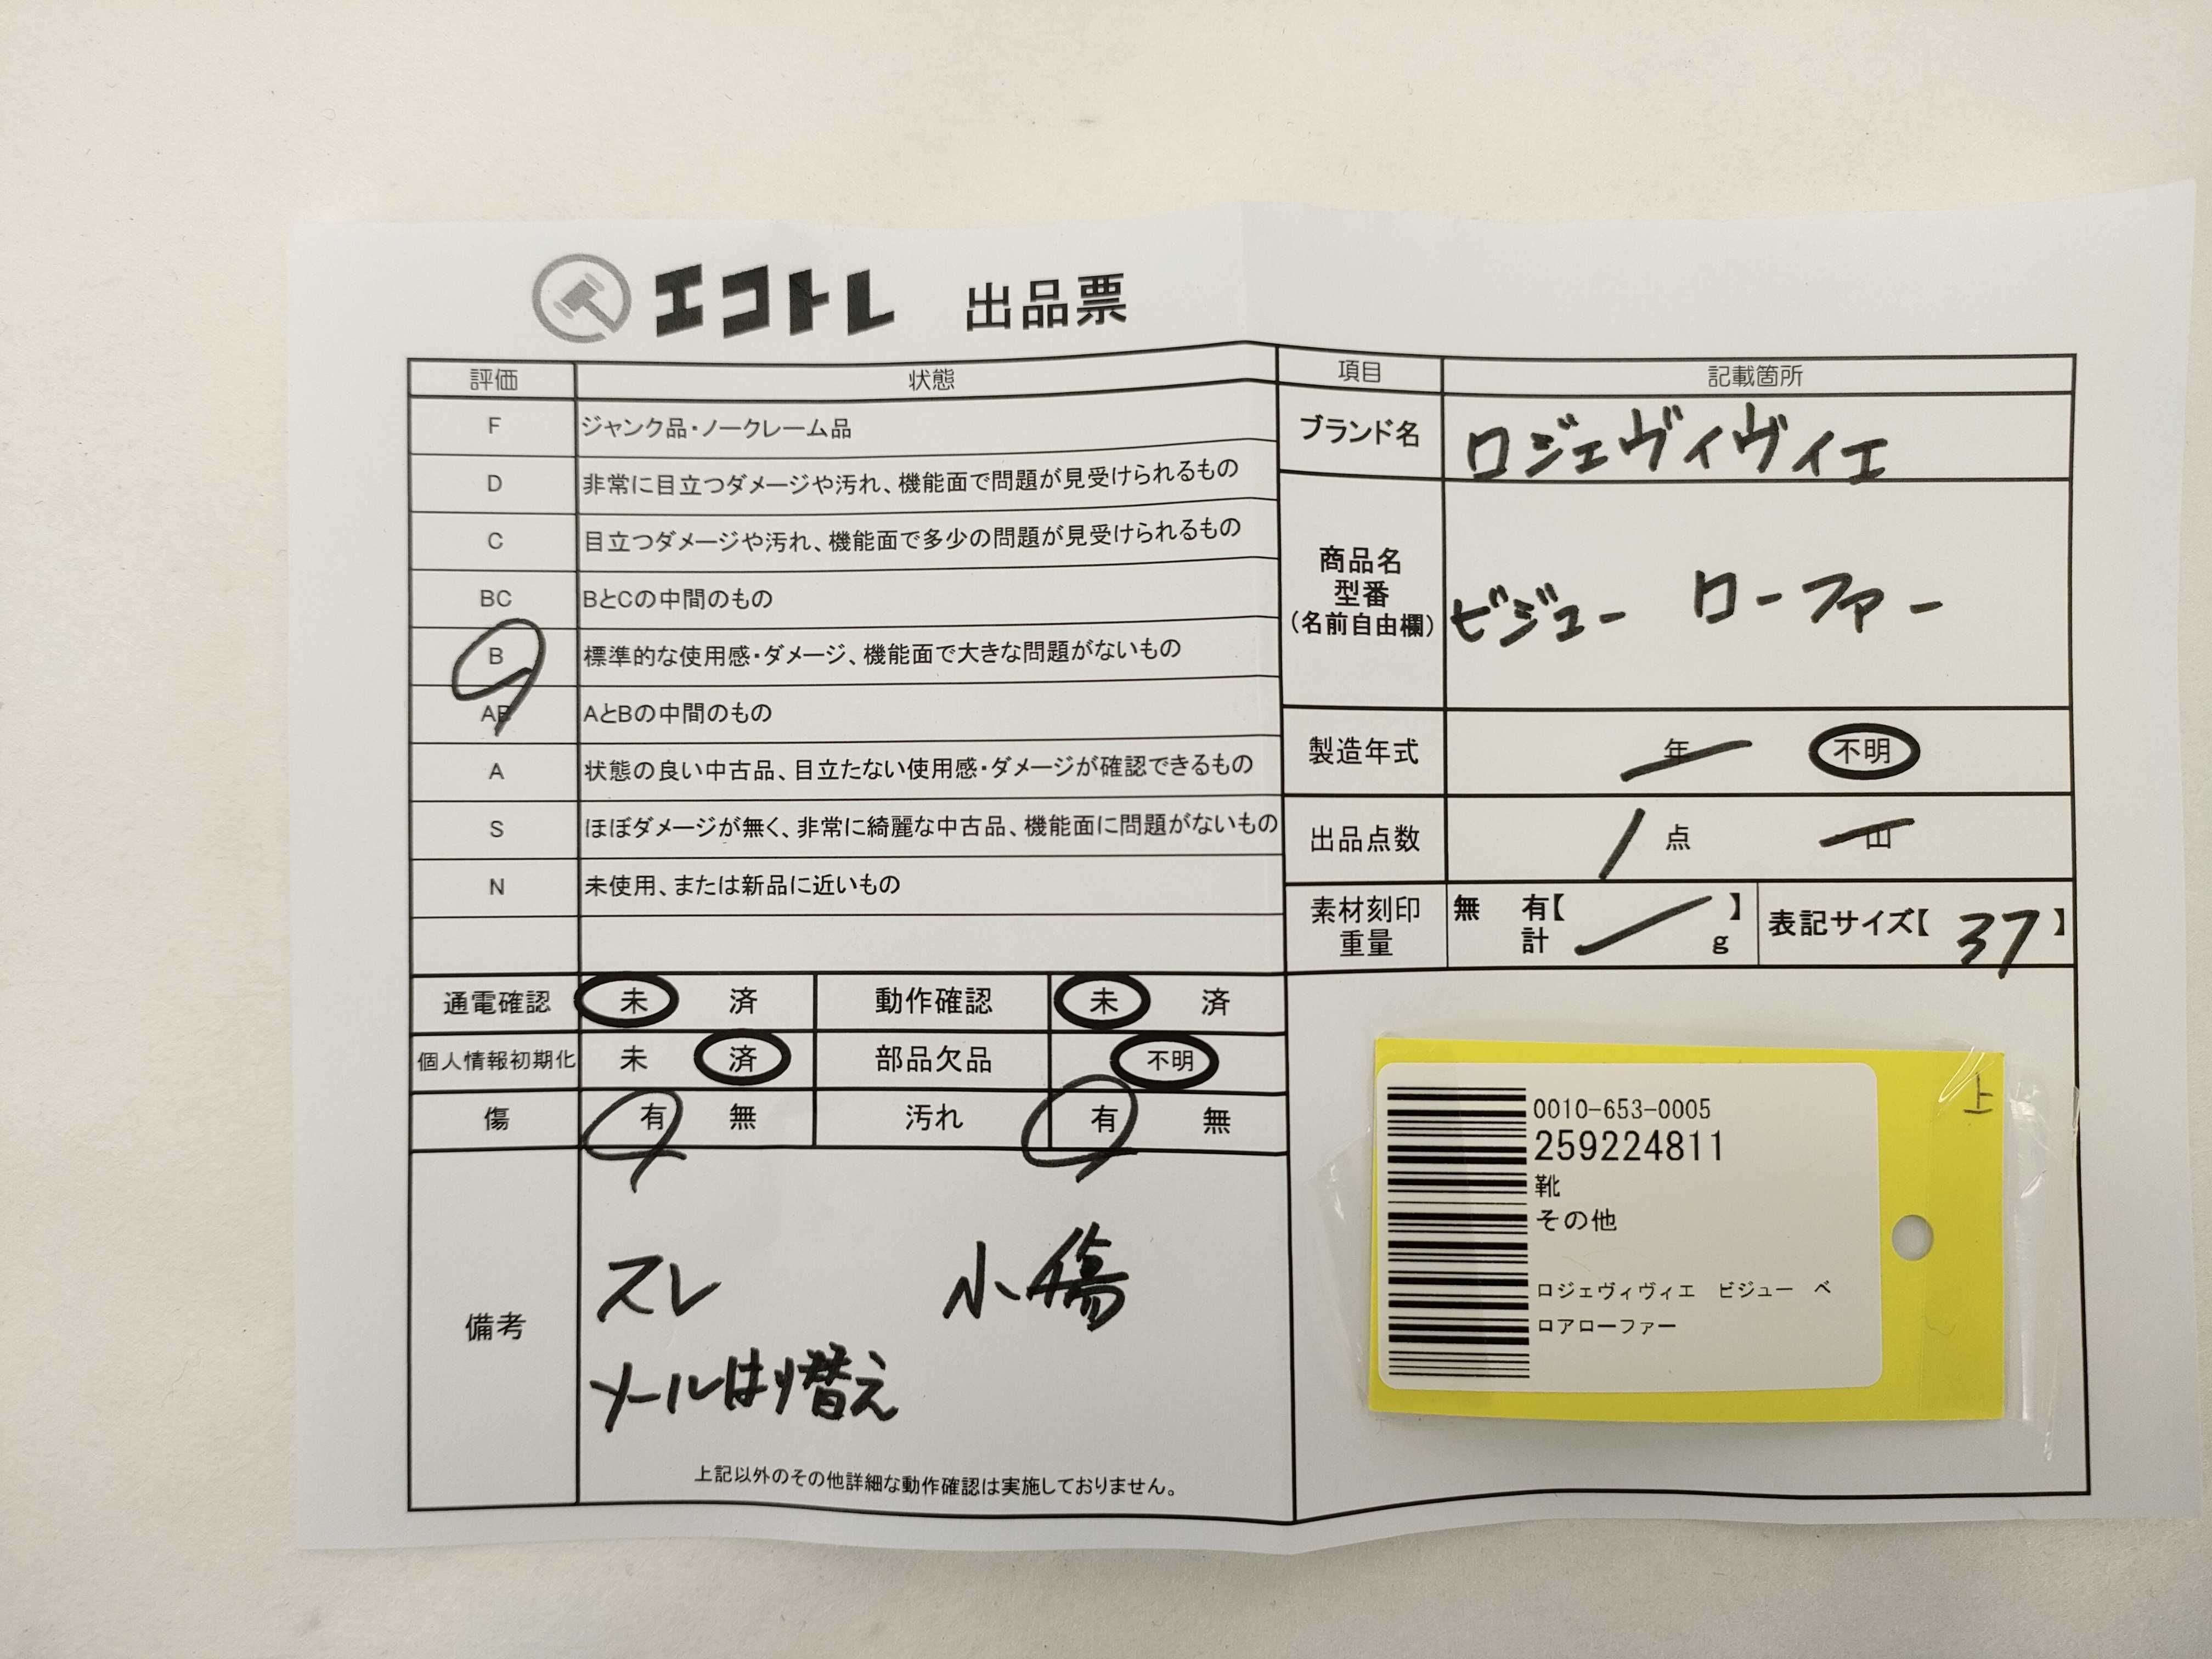 エコトレ 出品票
評価 状態
F ジャンク品・ノークレーム品
D 非常に目立つダメージや汚れ、機能面で問題が見受けられるもの
C 目立つダメージや汚れ、機能面で多少の問題が見受けられるもの
BC BとCの中間のもの
B 標準的な使用感・ダメージ、機能面で大きな問題がないもの
AB AとBの中間のもの
A 状態の良い中古品、目立たない使用感・ダメージが確認できるもの
S ほぼダメージが無く、非常に綺麗な中古品、機能面に問題がないもの
N 未使用、または新品に近いもの
通電確認 未 済 動作確認 未 済
個人情報初期化 未 済 部品欠品 不明
傷 有 無 汚れ 有 無
備考
スレ 小傷
ソールはり替え
上記以外のその他詳細な動作確認は実施しておりません。
項目 記載箇所
ブランド名 ロジェヴィヴィエ
商品名
型番
(名前自由欄)
ビジュー ローファー
製造年式 年 不明
出品点数 1 点 山
素材刻印 無 有【 】
重量 計 g
表記サイズ【 37 】
0010-653-0005
259224811
靴
その他
ロジェヴィヴィエ ビジュー ベ
ロアローファー
上